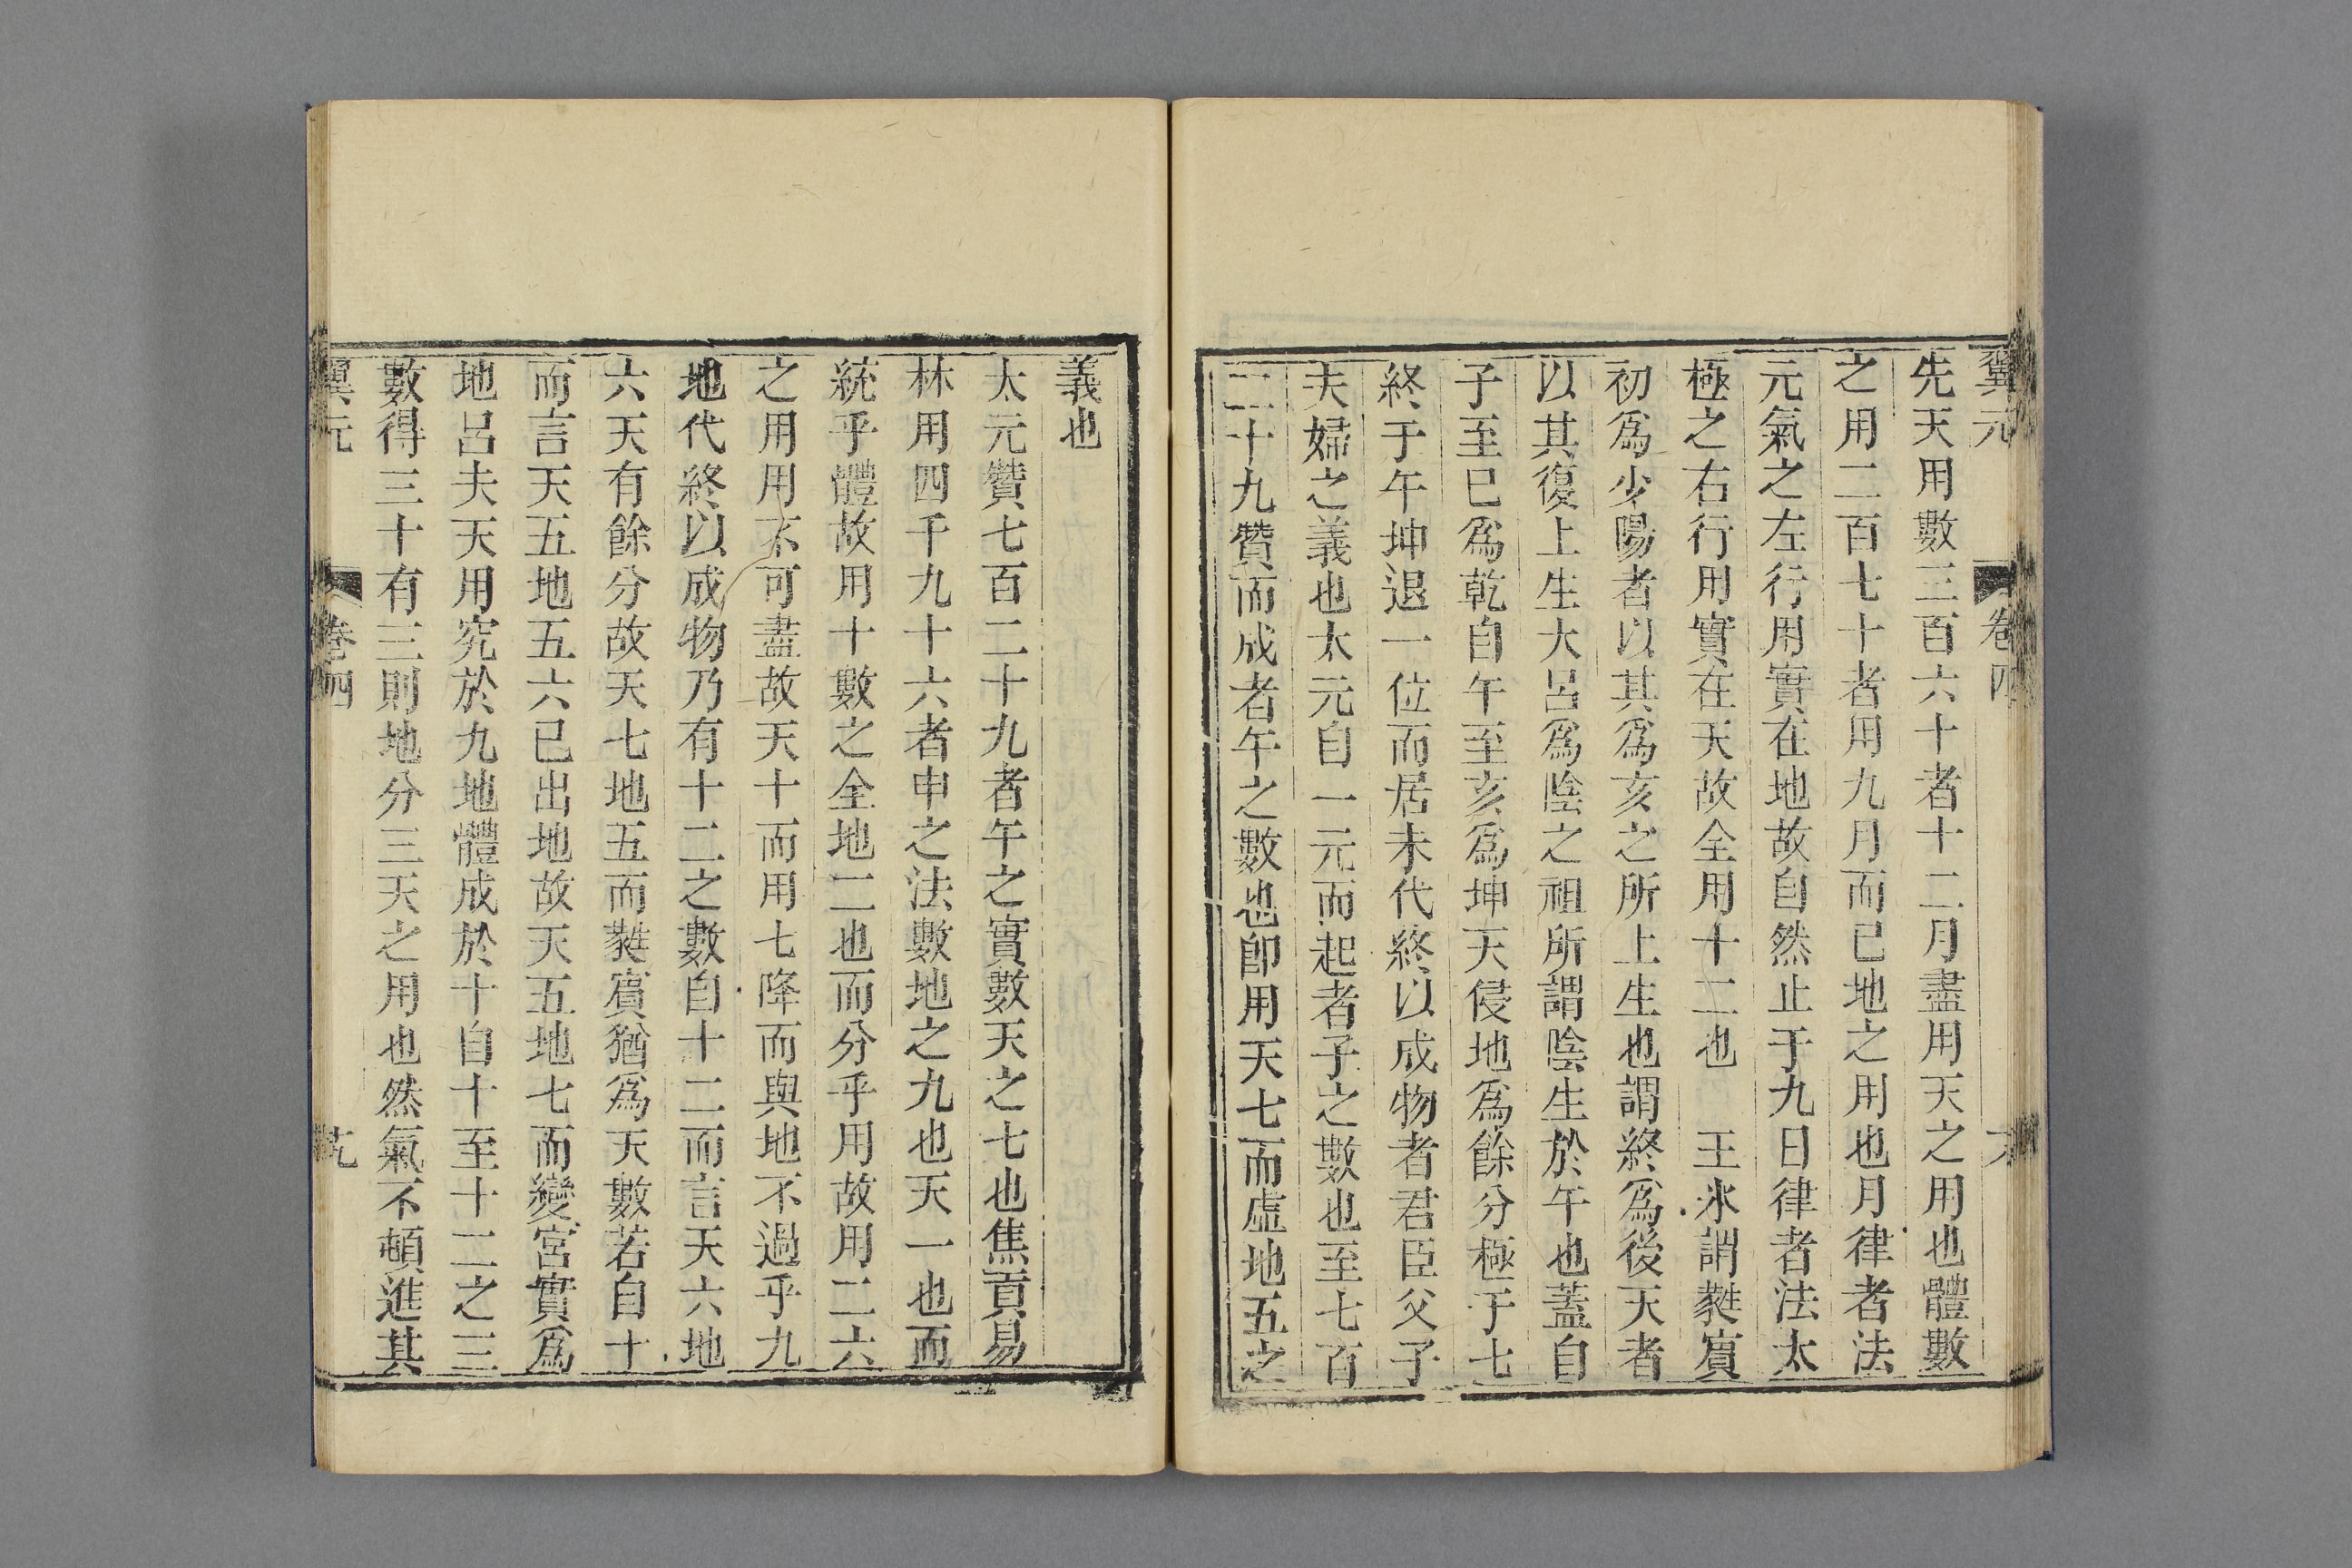 翼元 卷四
先天用數三百六十者十二月盡用天之用也體數
之用二百七十者用九月而已地之用也月律者法
元氣之左行用實在地故自然止于九日律者法太
極之右行用實在天故全用十二也 王氷謂蕤賔
初爲少陽者以其爲亥之所上生也謂終爲後天者
以其復上生大呂爲陰之祖所謂陰生於午也蓋自
子至巳爲乾自午至亥爲坤天侵地爲餘分極于七
終于午坤退一位而居未代終以成物者君臣父子
夫婦之義也太元自一元而起者子之數也至七百
二十九贊而成者午之數也卽用天七而虛地五之
義也
太元贊七百二十九者午之實數天之七也焦貢易
林用四千九十六者申之法數地之九也天一也而
統乎體故用十數之全地二也而分乎用故用二六
之用用不可盡故天十而用七降而與地不過乎九
地代終以成物乃有十二之數自十二而言天六地
六天有餘分故天七地五而蕤賔猶爲天數若自十
而言天五地五六已出地故天五地七而變宮實爲
地呂夫天用究於九地體成於十自十至十二之三
數得三十有三則地分三天之用也然氣不頓進其
翼元 卷四